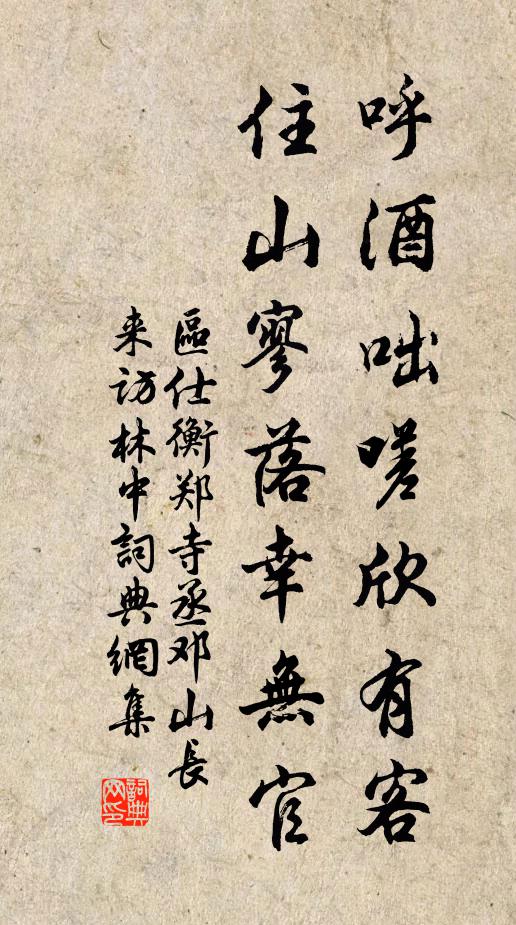 呼酒咄嗟欣有客
住山寥落幸無官
區仕衡郑寺丞邓山長
来访林中詞典網集
詞典
网印